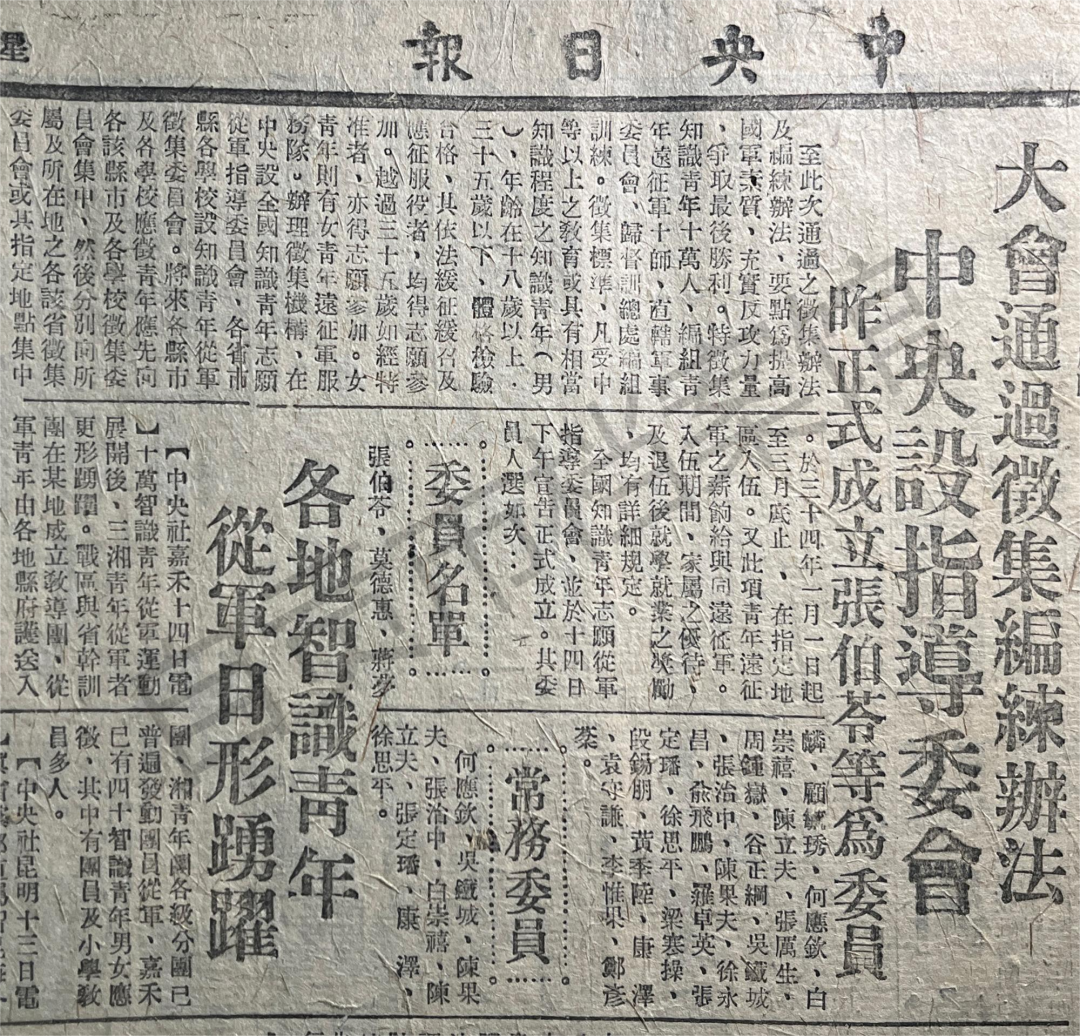 中央日報
大會通過徵集編練辦法
中央設指導委會
昨正式成立張伯苓等爲委員
至此次通過之徵集辦法
及編練辦法，要點爲提高
國軍素質，充實反攻力量
、爭取最後勝利。特徵集
知識青年十萬人、編組青
年遠征軍十師，直轄軍事
委員會，歸督訓總處編組
訓練。徵集標準，凡受中
等以上之教育或具有相當
知識程度之知識青年（男
），年齡在十八歲以上．
三十五歲以下、體格檢驗
合格，其依法緩征緩召及
應征服役者，均得志願參
加。越過三十五歲如經特
准者，亦得志願參加。女
青年則有女青年遠征軍服
務隊。辦理徵集機構，在
中央設全國知識青年志願
從軍指導委員會，各省市
縣各學校設知識青年從軍
徵集委員會。將來各縣市
及各學校應徵青年應先向
各該縣市及各學校徵集委
員會集中，然後分別向所
屬及所在地之各該省徵集
委員會或其指定地點集中
。於三十四年一月一日起
至三月底止、在指定地
區入伍。又此項青年遠征
軍之薪餉給與同遠征軍。
入伍期間、家屬之優待、
及退伍後就學就業之獎勵
、均有詳細規定。
全國知識青年志願從軍
指導委員會，並於十四日
下午宣告正式成立。其委
員人選如次．
委員名單
張伯苓、莫德惠、蔣夢
麟、顧毓琇、何應欽、白
崇禧、陳立夫、張厲生、
周鍾嶽、谷正綱、吳鐵城
、張治中、陳果夫、徐永
昌、俞飛鵬、羅卓英、張
定璠、徐思平、梁寒操、
段錫朋、黃季陸、康　澤
、袁守謙、李惟果、鄭彥
棻。
常務委員
何應欽、吳鐵城、陳果
夫、張治中、白崇禧、陳
立夫、張定璠、康　澤、
徐思平。
各地智識青年
從軍日形踴躍
【中央社嘉禾十四日電
】十萬智識青年從軍運動
展開後、三湘青年從軍者
更形踴躍。戰區與省幹訓
團在某地成立教導團、從
軍青年由各地縣府護送入
團、湘青年團各級分團已
普遍發動團員從軍、嘉禾
已有四十智識青年男女應
徵、其中有團員及小學教
員多人。
【中央社昆明十三日電